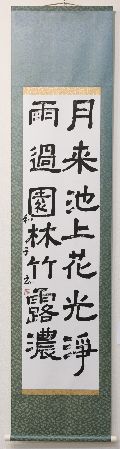 月来池上花光淨
雨過園林竹露濃